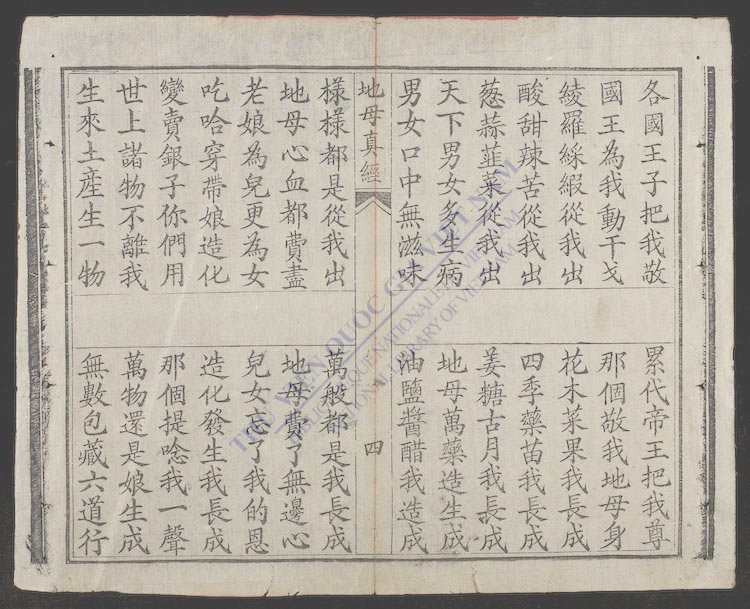 各國王子把我敬 累代帝王把我尊
國王為我動干戈 那個敬我地母身
綾羅綵緞從我出 花木菓果我長成
酸甜辣苦從我出 四季藥苗我長成
葱蒜韮菜從我出 姜糖古月我長成
天下男女多生病 地母萬藥造生成
男女口中無滋味 油鹽醬醋我造成
地母真經 四
樣樣都是從我出 萬般都是我長成
地母心血都費盡 地母費了無邊心
老娘為兒更為女 兒女忘了我的恩
吃哈穿帶娘造化 造化發生我長成
變賣銀子你們用 那個提唸我一聲
世上諸物不離我 萬物還是娘生成
生來土產生一物 無數包藏六道行
THƯ VIỆN QUỐC GIA VIỆT NAM
BIBLIOTHÈQUE NATIONALE DU VIETNAM
NATIONAL LIBRARY OF VIETNAM